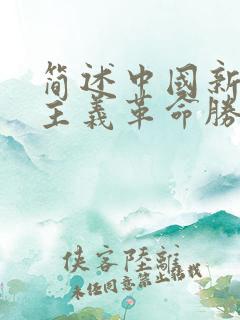 简述中國新
主義革命勝
侠客陸離
未经同意禁止搭载